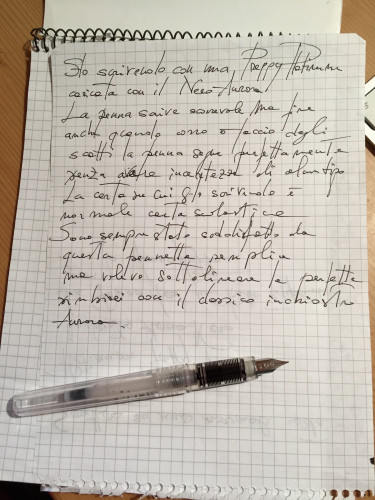 Sto scrivendo con una Preppy Platinum
caricata con il Nero Aurora
La penna scrive scorrevole ma fine
anche quando corro o faccio degli
scatti la penna segue perfettamente
senza avere incertezze di alcun tipo
La carta su cui sto scrivendo è
normale carta scolastica
Sono sempre stato soddisfatto da
questa pennetta semplice
ma volevo sottolineare la perfetta
simbiosi con il classico inchiostro
Aurora.